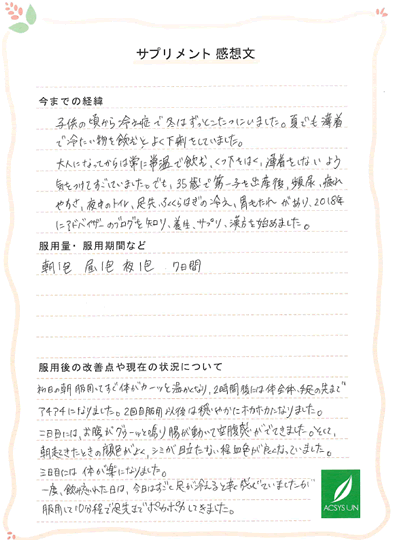 サプリメント 感想文
今までの経緯
子供の頃から冷え症で冬はずっとこたつにいました。夏でも薄着
で冷たい物を飲むとよく下痢をしていました。
大人になってからは常に常温で飲む、くつ下をはく、薄着をしないよう
気をつけてすごしていました。でも、35歳で第一子を出産後、頻尿、疲れ
やすさ、夜中のトイレ、足先、ふくらはぎの冷え、胃もたれがあり、2018年
にアドバイザーのブログを知り、養生、サプリ、漢方を始めました。
服用量・服用期間など
朝1包 昼1包 夜1包 7日間
服用後の改善点や現在の状況について
初日の朝服用してすぐ体がカーッと温かくなり、2時間後には体全体、手足の先まで
アチアチになりました。2回目服用以後は穏やかにホカホカになりました。
二日目には、お腹がグーッと鳴り腸が動いて空腹感がでてきました。そして、
朝起きたときの顔色がよく、シミが目立たない程血色が良くなっていました。
三日目には体が楽になりました。
一度、飲み忘れた日は、今日はすごく足が冷えると感じていましたが
服用して10分程で足先までぽかぽかしてきました。
ACSYS UN